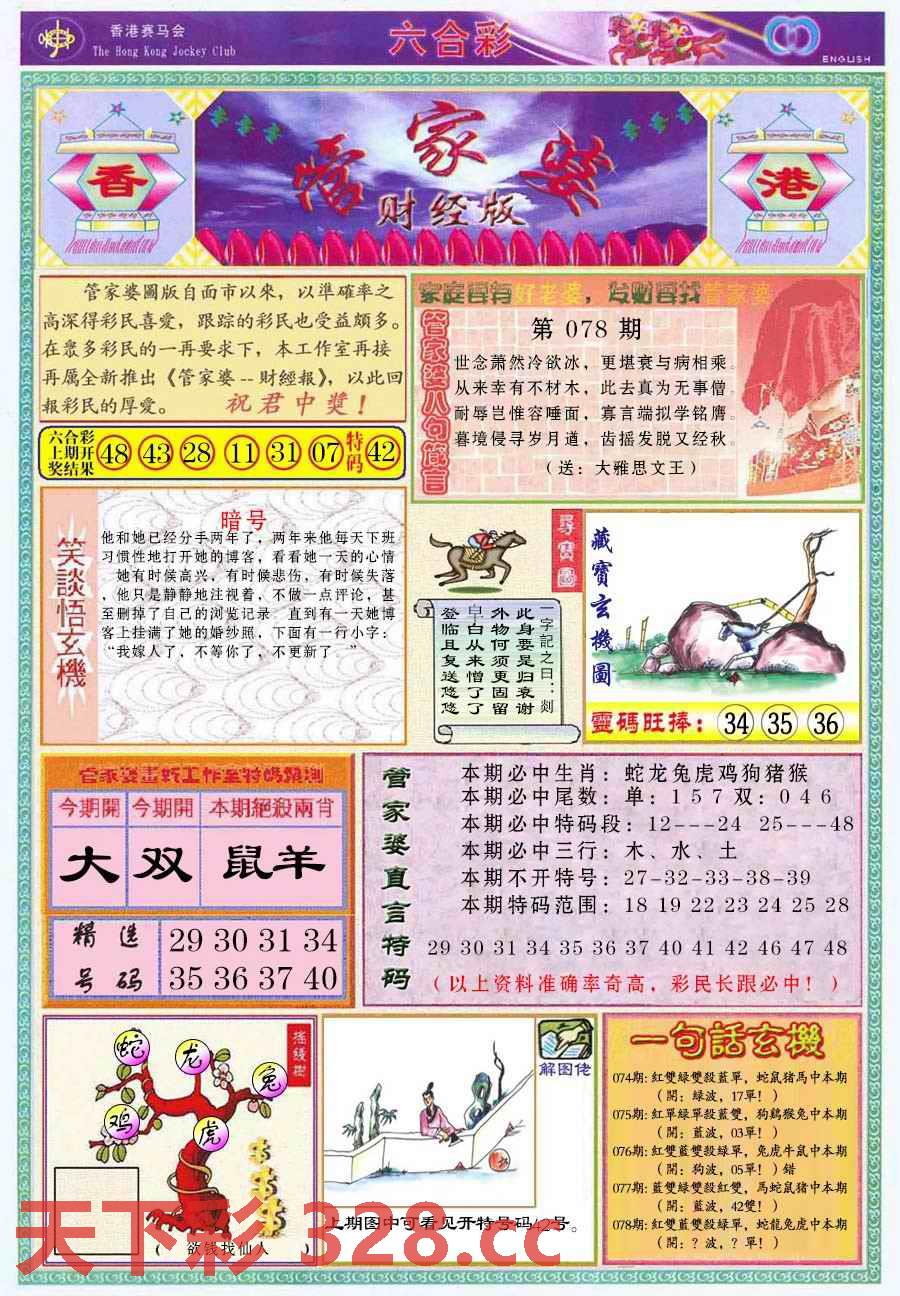 香港赛马会
The Hong Kong Jockey Club
六合彩
ENGLISH
香
管家婆
财经版
港
管家婆圖版自面市以來，以準確率之
高深得彩民喜愛，跟踪的彩民也受益頗多。
在眾多彩民的一再要求下，本工作室再接
再厲全新推出《管家婆--財經報》，以此回
報彩民的厚愛。
祝君中獎！
六合彩
上期开
奖结果
48 43 28 11 31 07
特码
42
管家婆八句箴言
第 078 期
世念萧然冷欲冰，更堪衰与病相乘。
从来幸有不材木，此去真为无事僧。
耐辱岂惟容唾面，寡言端拟学铭膺。
暮境侵寻岁月道，齿摇发脱又经秋。
（送：大雅思文王）
笑談悟玄機
暗号
他和她已经分手两年了，两年来他每天下班
习惯性地打开她的博客，看看她一天的心情
她有时候高兴，有时候悲伤，有时候失落
，他只是静静地注视着，不做一点评论，甚
至删掉了自己的浏览记录。直到有一天她博
客上挂满了她的婚纱照，下面有一行小字：
“我嫁人了，不等你了，不更新了。”
尋寶圖
一字記之曰：剡
此身要是归衰谢
外物何须更固留
皁白从来憎了了
登临且复送悠悠
藏寶玄機圖
靈碼旺捧：34 35 36
今期開
今期開
本期絕殺兩肖
大
双
鼠羊
精选
号码
29 30 31 34
35 36 37 40
管家婆直言特码
本期必中生肖：蛇龙兔虎鸡狗猪猴
本期必中尾数：单：1 5 7 双：0 4 6
本期必中特码段：12---24 25---48
本期必中三行：木、水、土
本期不开特号：27-32-33-38-39
本期特码范围：18 19 22 23 24 25 28
29 30 31 34 35 36 37 40 41 42 46 47 48
（以上资料准确率奇高，彩民长跟必中！）
摇錢樹
蛇
龙
兔
鸡
虎
（ 欲钱找仙人 ）
解图佬
上期图中可看见开特号码42号。
一句話玄機
074期：紅雙綠雙殺藍單，蛇鼠猪馬中本期
（開：绿波，17單！）
075期：紅單綠單殺藍雙，狗鷄猴兔中本期
（開：藍波，03單！）
076期：紅雙藍雙殺綠單，兔虎牛鼠中本期
（開：狗波，05單！）错
077期：藍雙綠雙殺紅雙，馬蛇鼠猪中本期
（開：藍波，42雙！）
078期：紅雙藍雙殺綠單，蛇龍兔虎中本期
（開：？波，？單！）
天下彩 328.cc